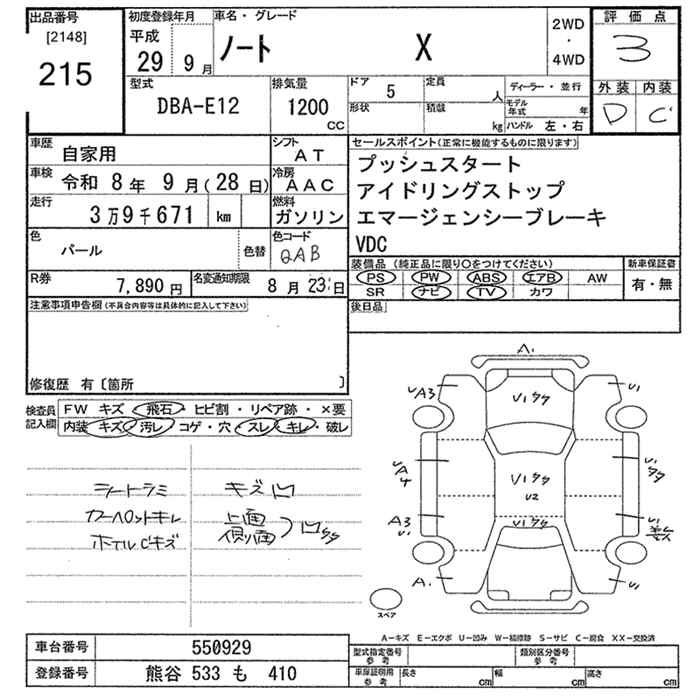 出品番号 初度登録年月 車名・グレード 2WD ・ 4WD 評価点
[2148] 215 平成 29 9月 ノート X 3
型式 排気量 ドア 5 定員 人 ディーラー・並行 外装 内装
DBA-E12 1200 CC 形状 積載 kg モデル年式 年 D C
ハンドル 左・右
車歴 自家用 シフト AT セールスポイント(正常に機能するものに限ります)
車検 令和 8年 9月(28日) 冷房 AAC プッシュスタート
アイドリングストップ
走行 3万9千671 km 燃料 ガソリン エマージェンシーブレーキ
色 パール 色替 色コード QAB VDC
装備品 (純正品に限り○をつけてください) 新車保証書
R券 7,890円 名変通知期限 8月23日 PS PW ABS エアB AW 有・無
SR ナビ TV カワ
注意事項申告欄(不具合内容等は具体的に記入して下さい) 後日品
修復歴 有〔箇所 〕
検査員記入欄 FW キズ・飛石・ヒビ割・リペア跡・×要
内装 キズ・汚レ・コゲ・穴・スレ・キレ・破レ
A.
UA3 U1タタ U1
シートラミ キズ凹 UA4 U1タタ U2 Uタタ
カーペットキレ 上面 側面 凹タタ A3 U1 U1タタ U1
ホイルCキズ
A. U1
スペア
A－キズ E－エクボ U－凹み W－補修跡 S－サビ C－腐食 XX－交換済
車台番号 550929 型式指定番号 参考 類別区分番号 参考
登録番号 熊谷 533 も 410 車庫証明用 参考 長さ cm 幅 cm 高さ cm